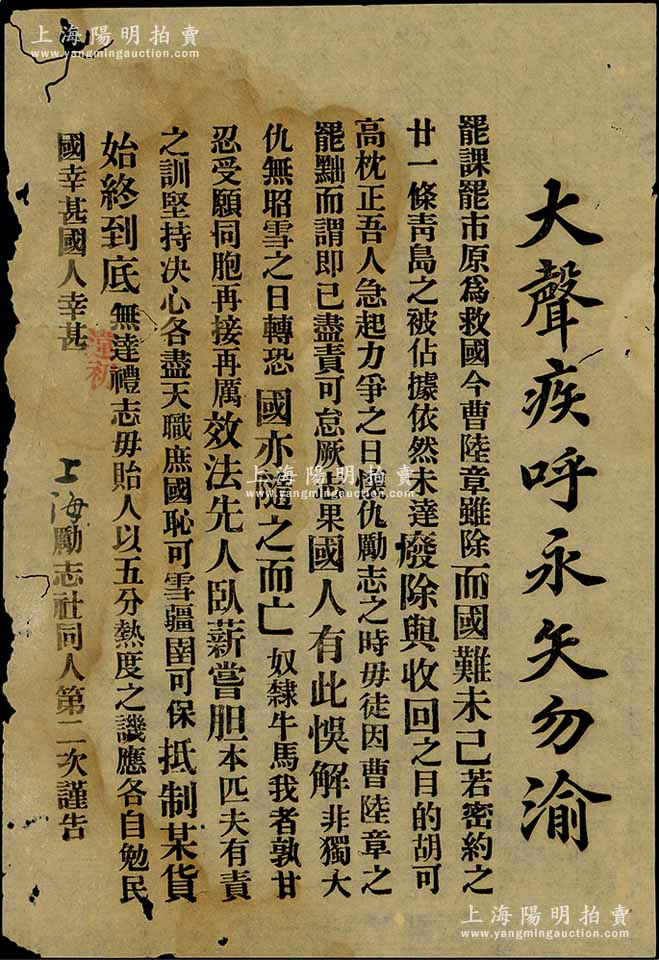 上海陽明拍賣
www.yangmingauction.com
大聲疾呼永矢勿渝
罷課罷市原爲救國今曹陸章雖除而國難未已若密約之
廿一條靑島之被佔據依然未達廢除與收回之目的胡可
高枕正吾人急起力爭之日懷仇勵志之時毋徒因曹陸章之
罷黜而謂卽已盡責可怠厥志果國人有此悞解非獨大
仇無昭雪之日轉恐國亦隨之而亡奴隸牛馬我者孰甘
忍受願同胞再接再厲效法先人臥薪嘗胆本匹夫有責
之訓堅持決心各盡天職庶國恥可雪疆圉可保抵制某貨
始終到底無達禮志毋貽人以五分熱度之譏應各自勉民
國幸甚國人幸甚
上海勵志社同人第二次謹告
上海陽明拍賣
www.yangmingauction.com
上海陽明拍賣
www.yangmingauction.com